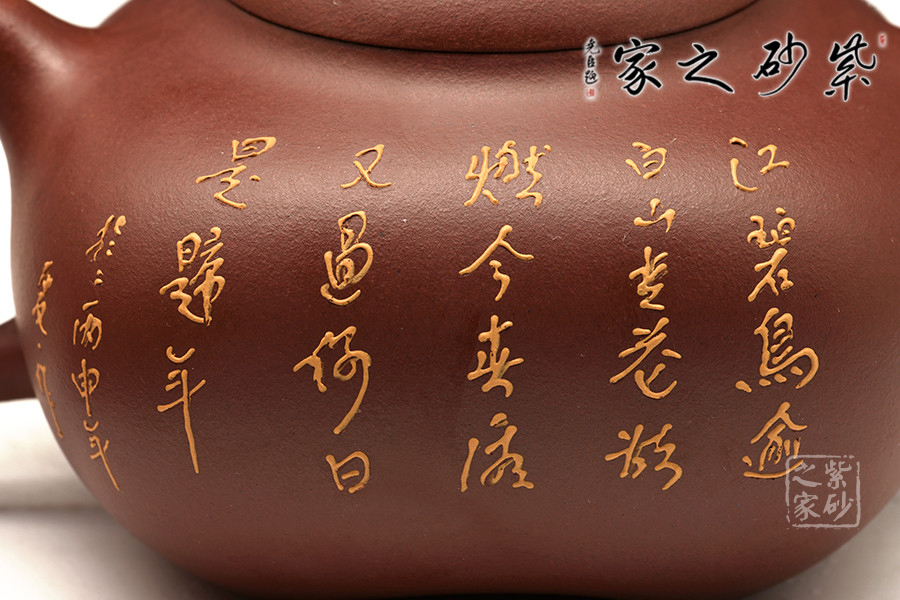 紫砂之家
江碧鳥逾
白山青花欲
燃今春看
又過何日
是歸年
丙申年
紫砂
之家